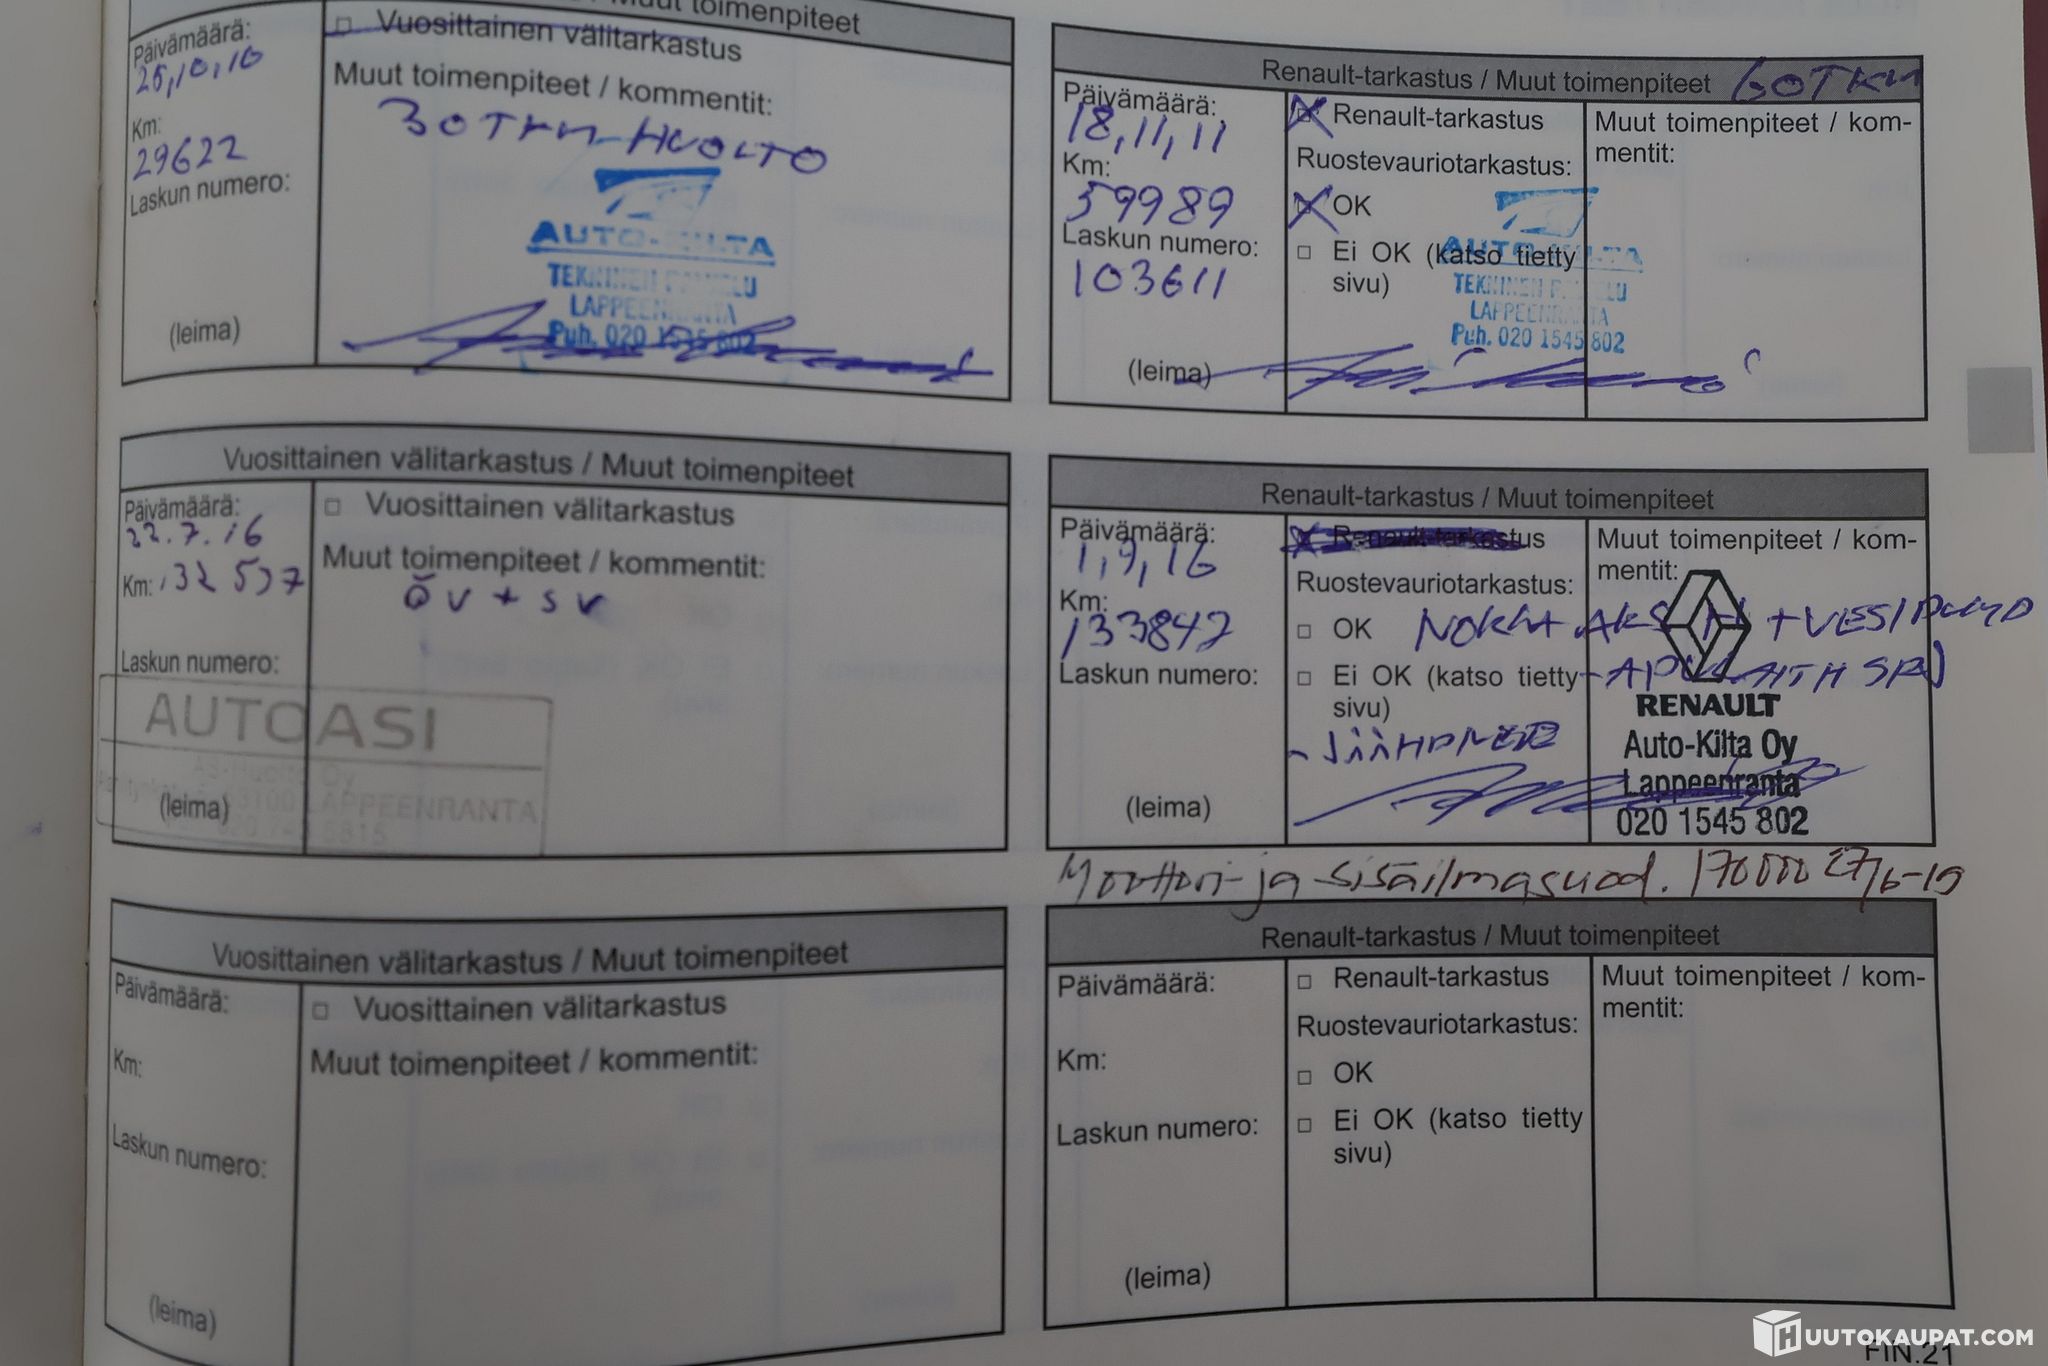 Muut toimenpiteet
Päivämäärä:
25,10,10
Km:
29622
Laskun numero:
(leima)
□ Vuosittainen välitarkastus
Muut toimenpiteet / kommentit:
30 TKM-HUOLTO
AUTO-KILTA
TEKNINEN PALVELU
LAPPEENRANTA
Puh. 020 1545 802
Renault-tarkastus / Muut toimenpiteet 60TKM
Päivämäärä:
18,11,11
Km:
59989
Laskun numero:
103611
(leima)
Renault-tarkastus
Ruostevauriotarkastus:
OK
□ Ei OK (katso tietty
sivu)
Muut toimenpiteet / kom-
mentit:
AUTO-KILTA
TEKNINEN PALVELU
LAPPEENRANTA
Puh. 020 1545 802
Vuosittainen välitarkastus / Muut toimenpiteet
Päivämäärä:
22.7.16
Km: 132 537
Laskun numero:
(leima)
□ Vuosittainen välitarkastus
Muut toimenpiteet / kommentit:
öv + sv
AUTOASI
AS-Huolto Oy
53100 LAPPEENRANTA
Renault-tarkastus / Muut toimenpiteet
Päivämäärä:
1,9,16
Km:
133847
Laskun numero:
(leima)
Renault-tarkastus
Ruostevauriotarkastus:
□ OK
□ Ei OK (katso tietty
sivu)
Muut toimenpiteet / kom-
mentit:
NOKKA AKSELI + VESIPUMP
-APULAITH SRJ
-JÄÄHDNEST
RENAULT
Auto-Kilta Oy
Lappeenranta
020 1545 802
Moottori- ja sisäilmasuod. 170000 27/6-19
Vuosittainen välitarkastus / Muut toimenpiteet
Päivämäärä:
Km:
Laskun numero:
(leima)
□ Vuosittainen välitarkastus
Muut toimenpiteet / kommentit:
Renault-tarkastus / Muut toimenpiteet
Päivämäärä:
Km:
Laskun numero:
(leima)
□ Renault-tarkastus
Ruostevauriotarkastus:
□ OK
□ Ei OK (katso tietty
sivu)
Muut toimenpiteet / kom-
mentit:
HUUTOKAUPAT.COM
FIN.21